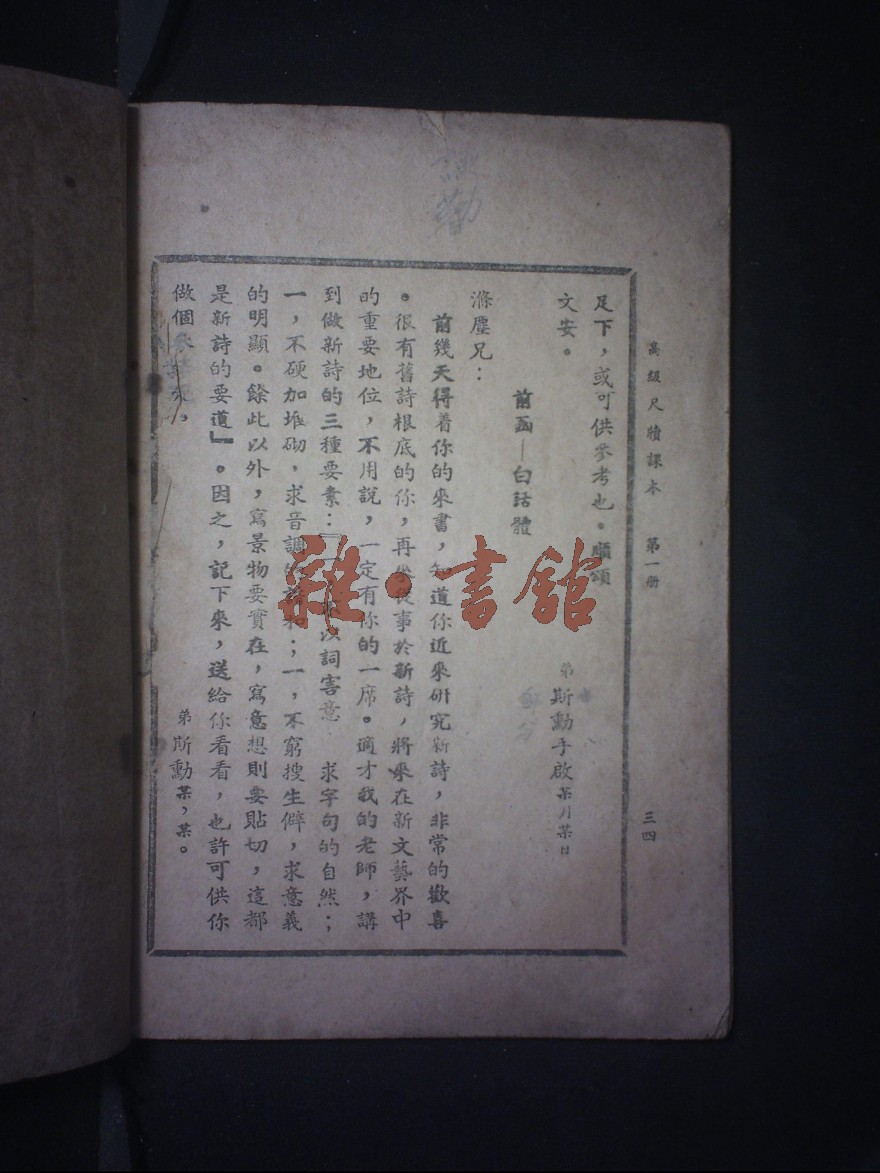 高級尺牘課本　第一册
三四
足下，或可供參考也。順頌
文安。
弟斯勳手啟某月某日
前函—白話體
滌塵兄：
前幾天得着你的來書，知道你近來研究新詩，非常的歡喜
。很有舊詩根底的你，再來從事於新詩，將來在新文藝界中
的重要地位，不用說，一定有你的一席。適才我的老師，講
到做新詩的三種要素：『一，不以詞害意　求字句的自然；
一，不硬加堆砌，求音調的諧和；一，不窮搜生僻，求意義
的明顯。餘此以外，寫景物要實在，寫意想則要貼切，這都
是新詩的要道』。因之，記下來，送給你看看，也許可供你
做個參
弟斯勳某，某。
雜·書館